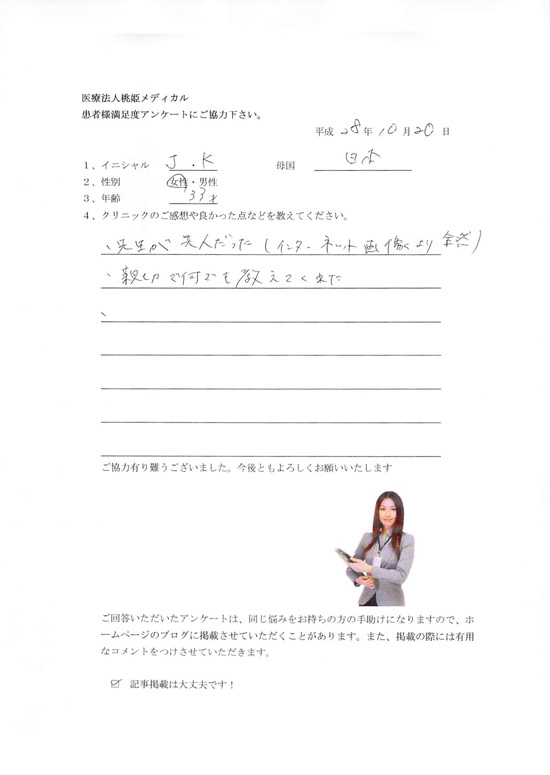 医療法人桃姫メディカル
患者様満足度アンケートにご協力下さい。
平成 28 年 10 月 20 日
1、イニシャル J.K 母国 日本
2、性別 女性・男性
3、年齢 33才
4、クリニックのご感想や良かった点などを教えてください。
、先生が 美人だった (インターネット画像より 全然)
、親切で何でも教えてくれた
、
ご協力有り難うございました。今後ともよろしくお願いいたします
ご回答いただいたアンケートは、同じ悩みをお持ちの方の手助けになりますので、ホ
ームページのブログに掲載させていただくことがあります。また、掲載の際には有用
なコメントをつけさせていただきます。
☑ 記事掲載は大丈夫です！